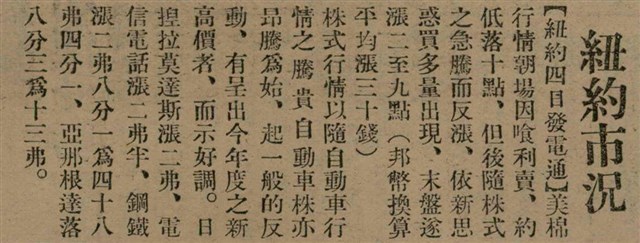 紐約市况
【紐約四日發電通】美棉
行情朝場因喰利賣、約
低落十點、但後隨株式
之急騰而反漲、依新思
惑買多量出現、末盤遂
漲二至九點（邦幣換算
平均漲三十錢）
株式行情以隨自動車行
情之騰貴自動車株亦
昂騰爲始、起一般的反
動、有呈出今年度之新
高價者、而示好調。日
揑拉莫達斯漲二弗、電
信電話漲二弗半、鋼鐵
漲二弗八分一爲四十八
弗四分一、亞那根達落
八分三爲十三弗。